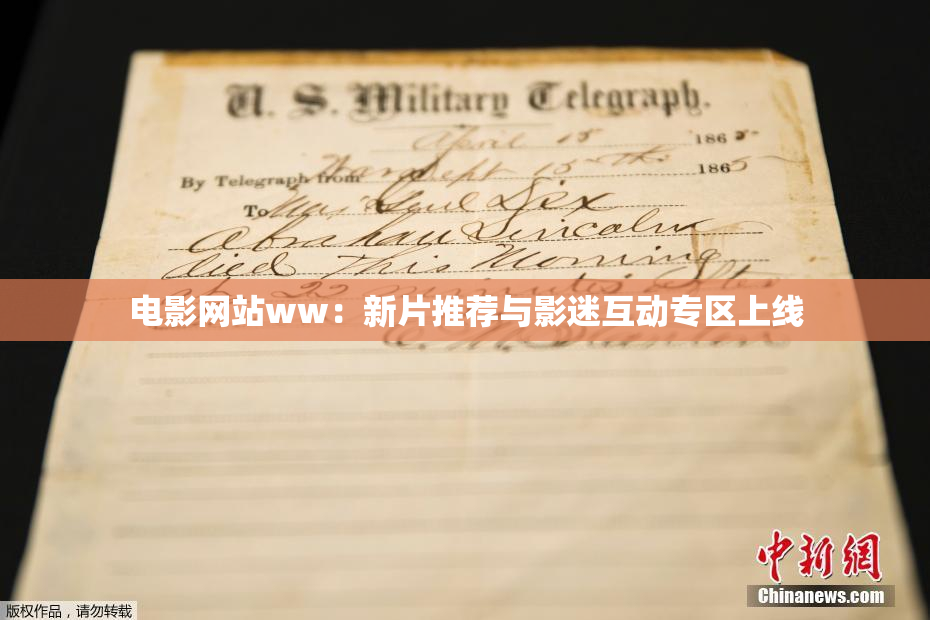 U. S. Military Telegraph.
April 15 1865
By Telegraph from War Dept 15th 1865
To Maj Genl Dix
Abraham Lincoln
died This Morning
at 22 minutes after
电影网站ww：新片推荐与影迷互动专区上线
E. M. Stanton
中新网
Chinanews.com
版权作品，请勿转载